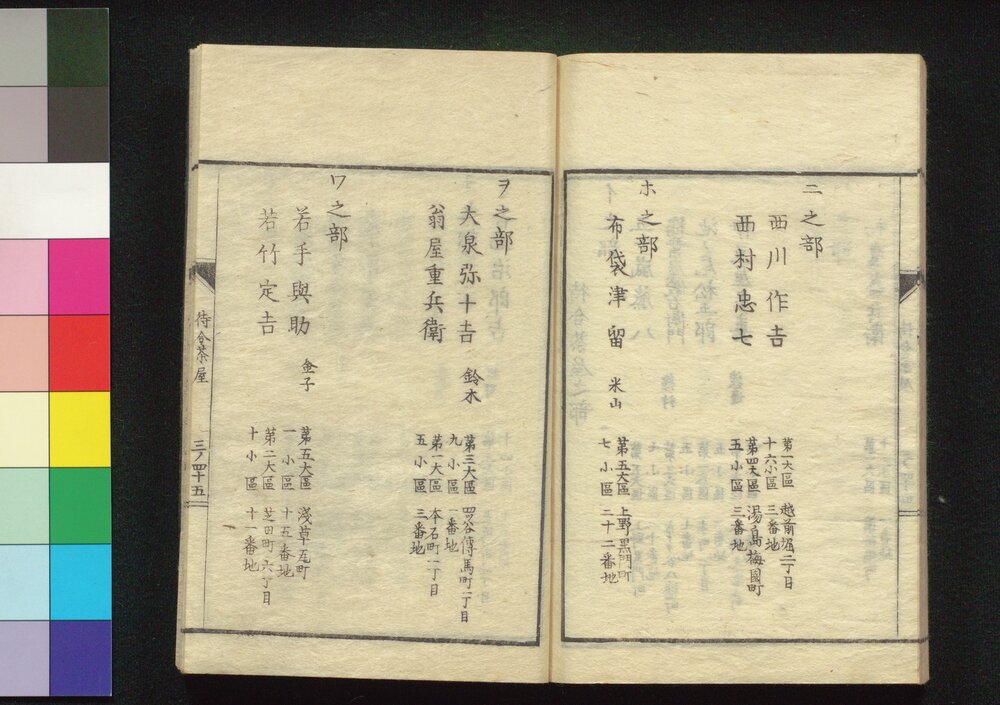 ニ之部
西川作吉
第一大區 越前堀二丁目
十六小區 三番地
西村忠七
第四大區 湯島梅園町
五小區 三番地
ホ之部
布袋津留 米山
第五大區 上野黒門町
七小區 二十二番地
ヲ之部
大泉弥十吉 鈴木
第三大區 四谷傳馬町一丁目
九小區 一番地
翁屋重兵衛
第一大區 本石町一丁目
五小區 三番地
ワ之部
若手與助 金子
第五大區 淺草瓦町
一小區 十五番地
若竹定吉
第二大區 芝田町六丁目
十小區 十一番地
待合茶屋
三ノ四十五